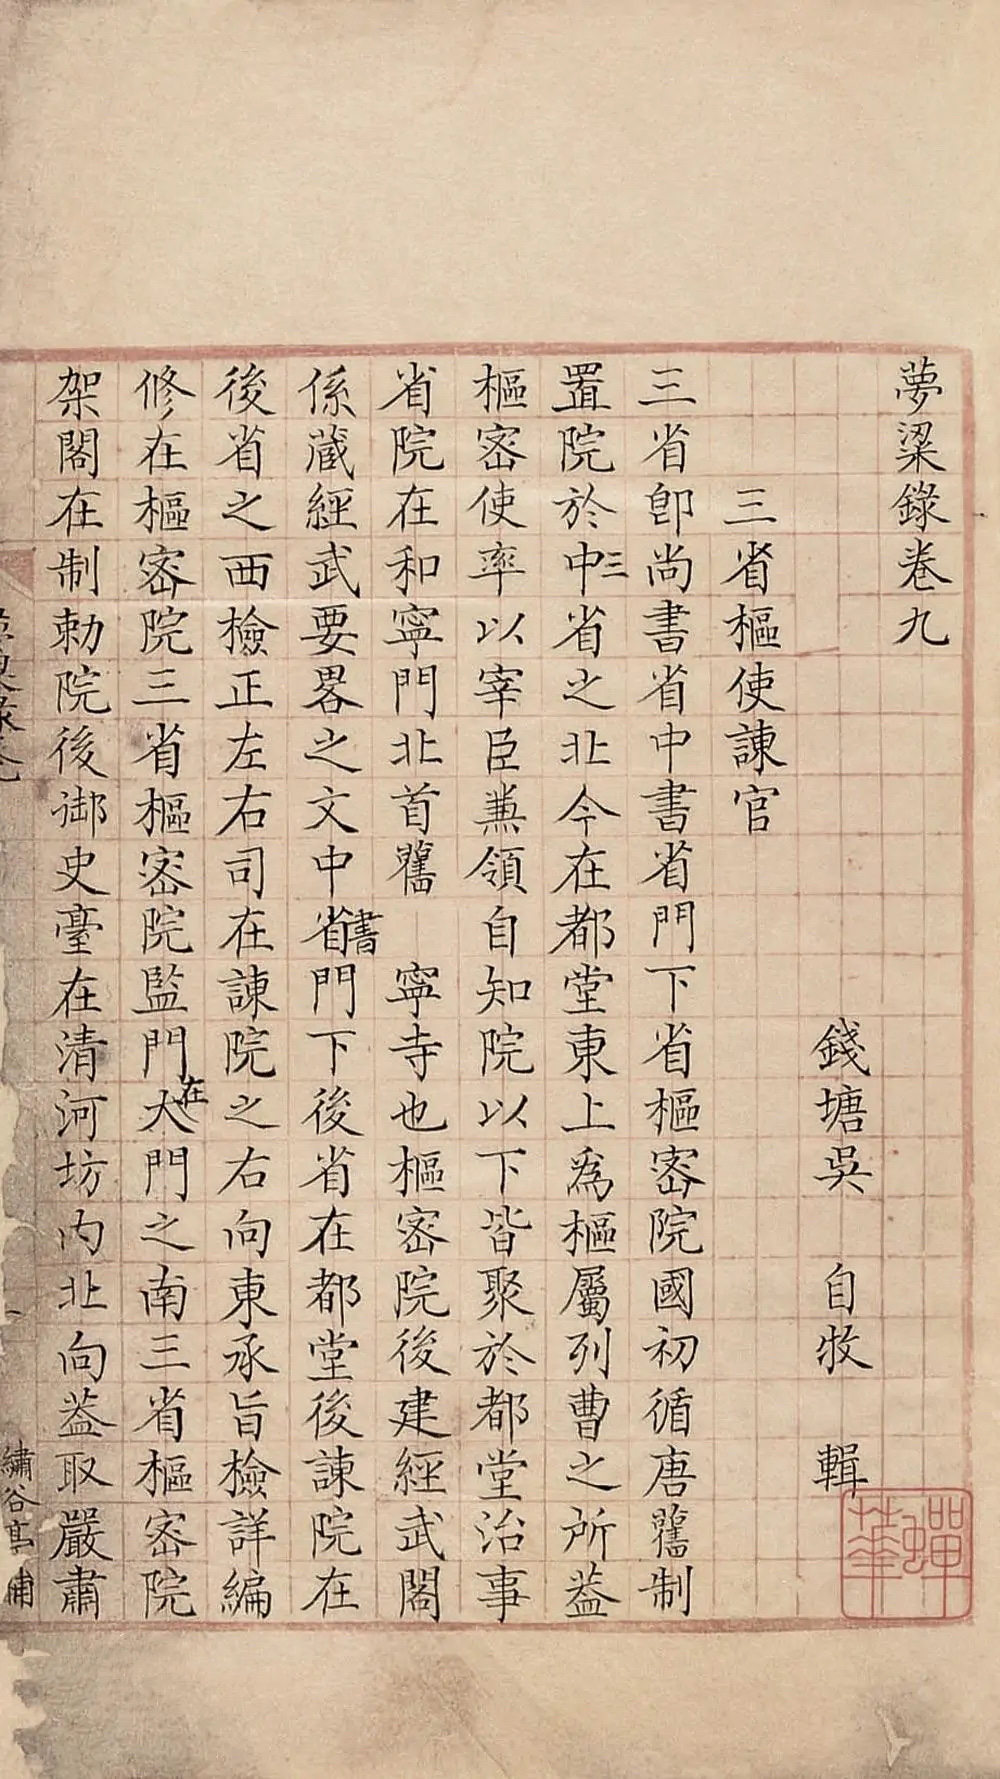 夢粱錄卷九
錢塘吳 自牧 輯
三省樞使諫官
三省卽尚書省中書省門下省樞密院國初循唐舊制
置院於中三省之北今在都堂東上爲樞屬列曹之所葢
樞密使率以宰臣兼領自知院以下皆聚於都堂治事
省院在和寧門北首舊 寧寺也樞密院後建經武閣
係蔵經武要畧之文中省書門下後省在都堂後諫院在
後省之西檢正左右司在諫院之右向東承旨檢詳編
修在樞密院三省樞密院監門在大門之南三省樞密院
架閣在制勅院後御史臺在清河坊内北向葢取嚴肅
繡谷亭